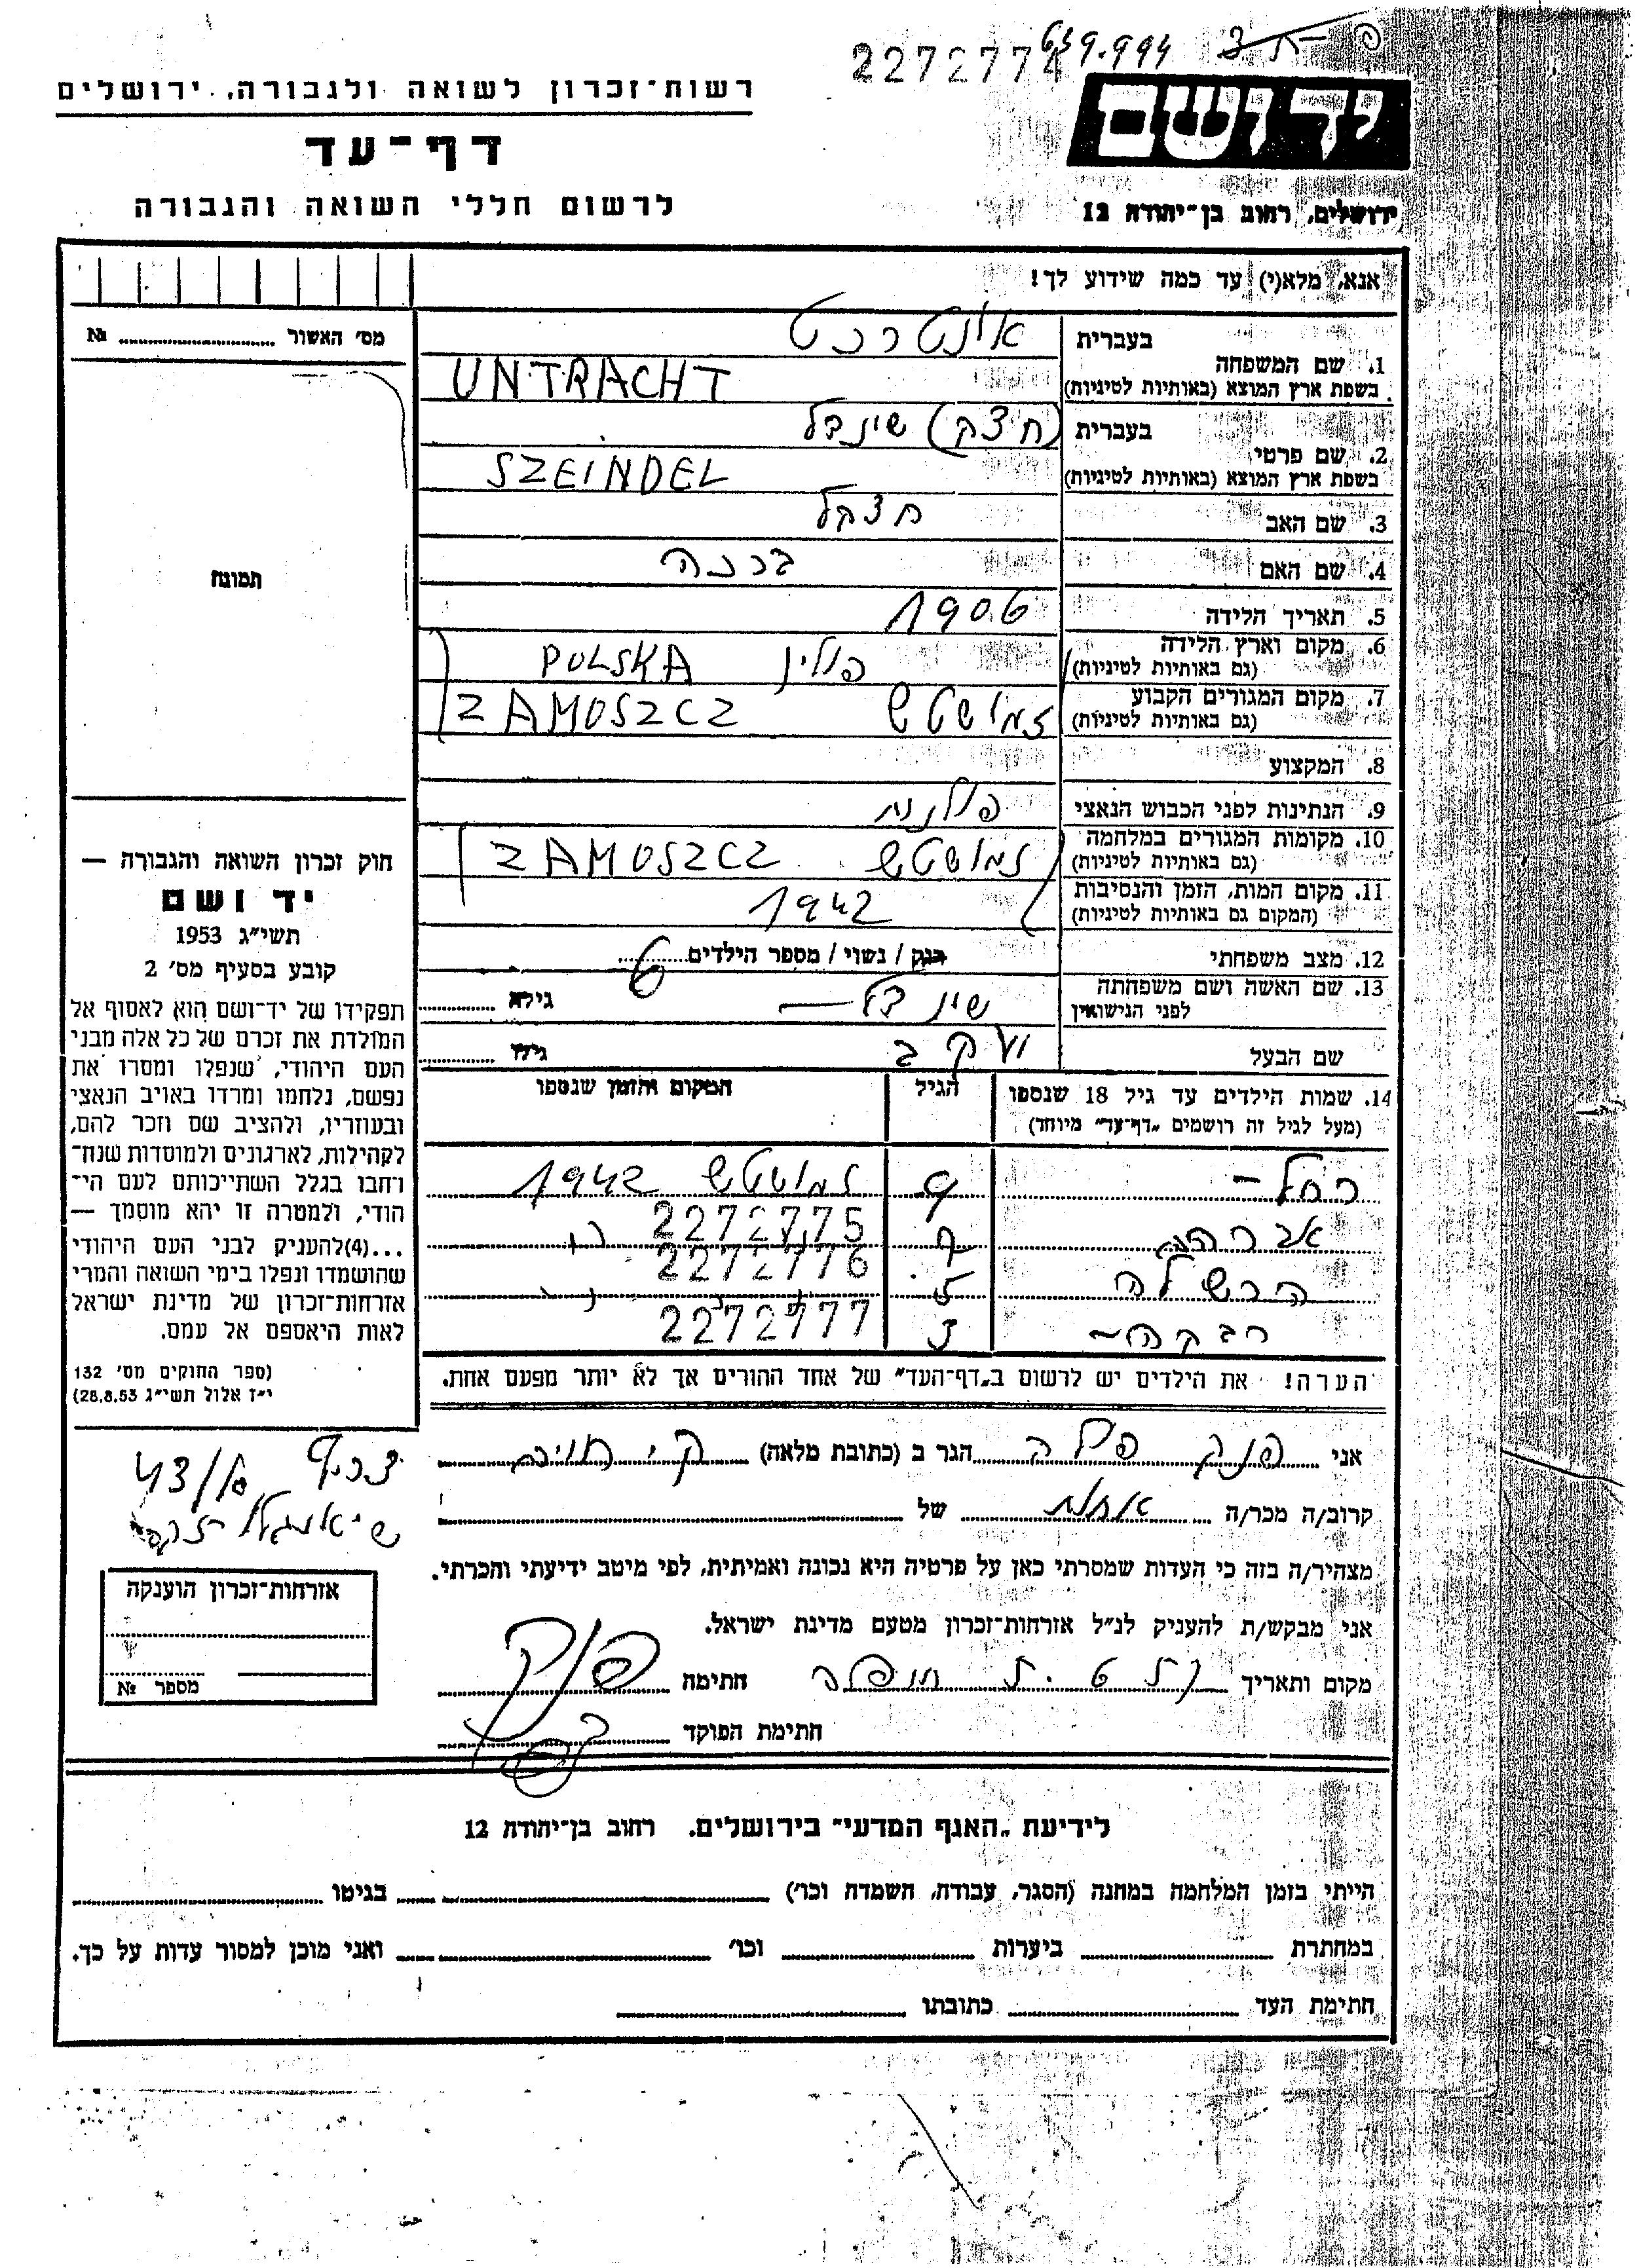 2272774 639.994
ידושם
ירושלים, רחוב בן־יהודה 12
רשות־זכרון לשואה ולגבורה, ירושלים
דף־עד
לרשום חללי השואה והגבורה
אנא, מלא(י) עד כמה שידוע לך!
מס׳ האשור № 
1. שם המשפחה בעברית אונטרכט
בשפת ארץ המוצא (באותיות לטיניות) UNTRACHT
2. שם פרטי בעברית (חצק) שינדל
בשפת ארץ המוצא (באותיות לטיניות) SZEINDEL
3. שם האב חצקל
4. שם האם ברכה
5. תאריך הלידה 1906
6. מקום וארץ הלידה (גם באותיות לטיניות) פולין POLSKA
7. מקום המגורים הקבוע (גם באותיות לטיניות) זמושטש ZAMOSZCZ
8. המקצוע
9. הנתינות לפני הכבוש הנאצי פולנית
10. מקומות המגורים במלחמה (גם באותיות לטיניות) זמושטש ZAMOSZCZ
11. מקום המות, הזמן והנסיבות (המקום גם באותיות לטיניות) 1942
12. מצב משפחתי רווק / נשוי / מספר הילדים 6
13. שם האשה ושם משפחתה לפני הנישואין שינדל – גילא
שם הבעל יעקב גילו
14. שמות הילדים עד גיל 18 שנספו הגיל המקום והזמן שנספו
(מעל לגיל זה רושמים „דף־עד״ מיוחד)
רחל – 9 זמושטש 1942
2272775
אברהם 7
2272776
הרשלה 5
2272777
רבקה – 3
הערה! את הילדים יש לרשום ב„דף־העד״ של אחד ההורים אך לא יותר מפעם אחת.
תמונה
חוק זכרון השואה והגבורה —
יד ושם
תשי״ג 1953
קובע בסעיף מס׳ 2
תפקידו של יד־ושם הוא לאסוף אל
המולדת את זכרם של כל אלה מבני
העם היהודי, שנפלו ומסרו את
נפשם, נלחמו ומרדו באויב הנאצי
ובעוזריו, ולהציב שם וזכר להם,
לקהילות, לארגונים ולמוסדות שנח־
רחבו בגלל השתייכותם לעם הי־
הודי, ולמטרה זו יהא מוסמך —
...(4)להעניק לבני העם היהודי
שהושמדו ונפלו בימי השואה והמרי
אזרחות־זכרון של מדינת ישראל
לאות היאספם אל עמם.
(ספר החוקים מס׳ 132
י״ז אלול תשי״ג 28.8.53)
צריף
אני פנק הגר ב (כתובת מלאה)
קרוב/ה מכר/ה אחות של
מצהיר/ה בזה כי העדות שמסרתי כאן על פרטיה היא נכונה ואמיתית, לפי מיטב ידיעתי והכרתי.
אני מבקש/ת להעניק לנ״ל אזרחות־זכרון מטעם מדינת ישראל.
מקום ותאריך חתימה פנק
חתימת הפוקד
אזרחות־זכרון הוענקה
מספר №
לידיעת „האגף המדעי״ בירושלים. רחוב בן־יהודה 12
הייתי בזמן המלחמה במחנה (הסגר, עבודה, השמדה וכו׳) בגיטו
במחתרת ביערות וכו׳ ואני מוכן למסור עדות על כך.
חתימת העד כתובתו